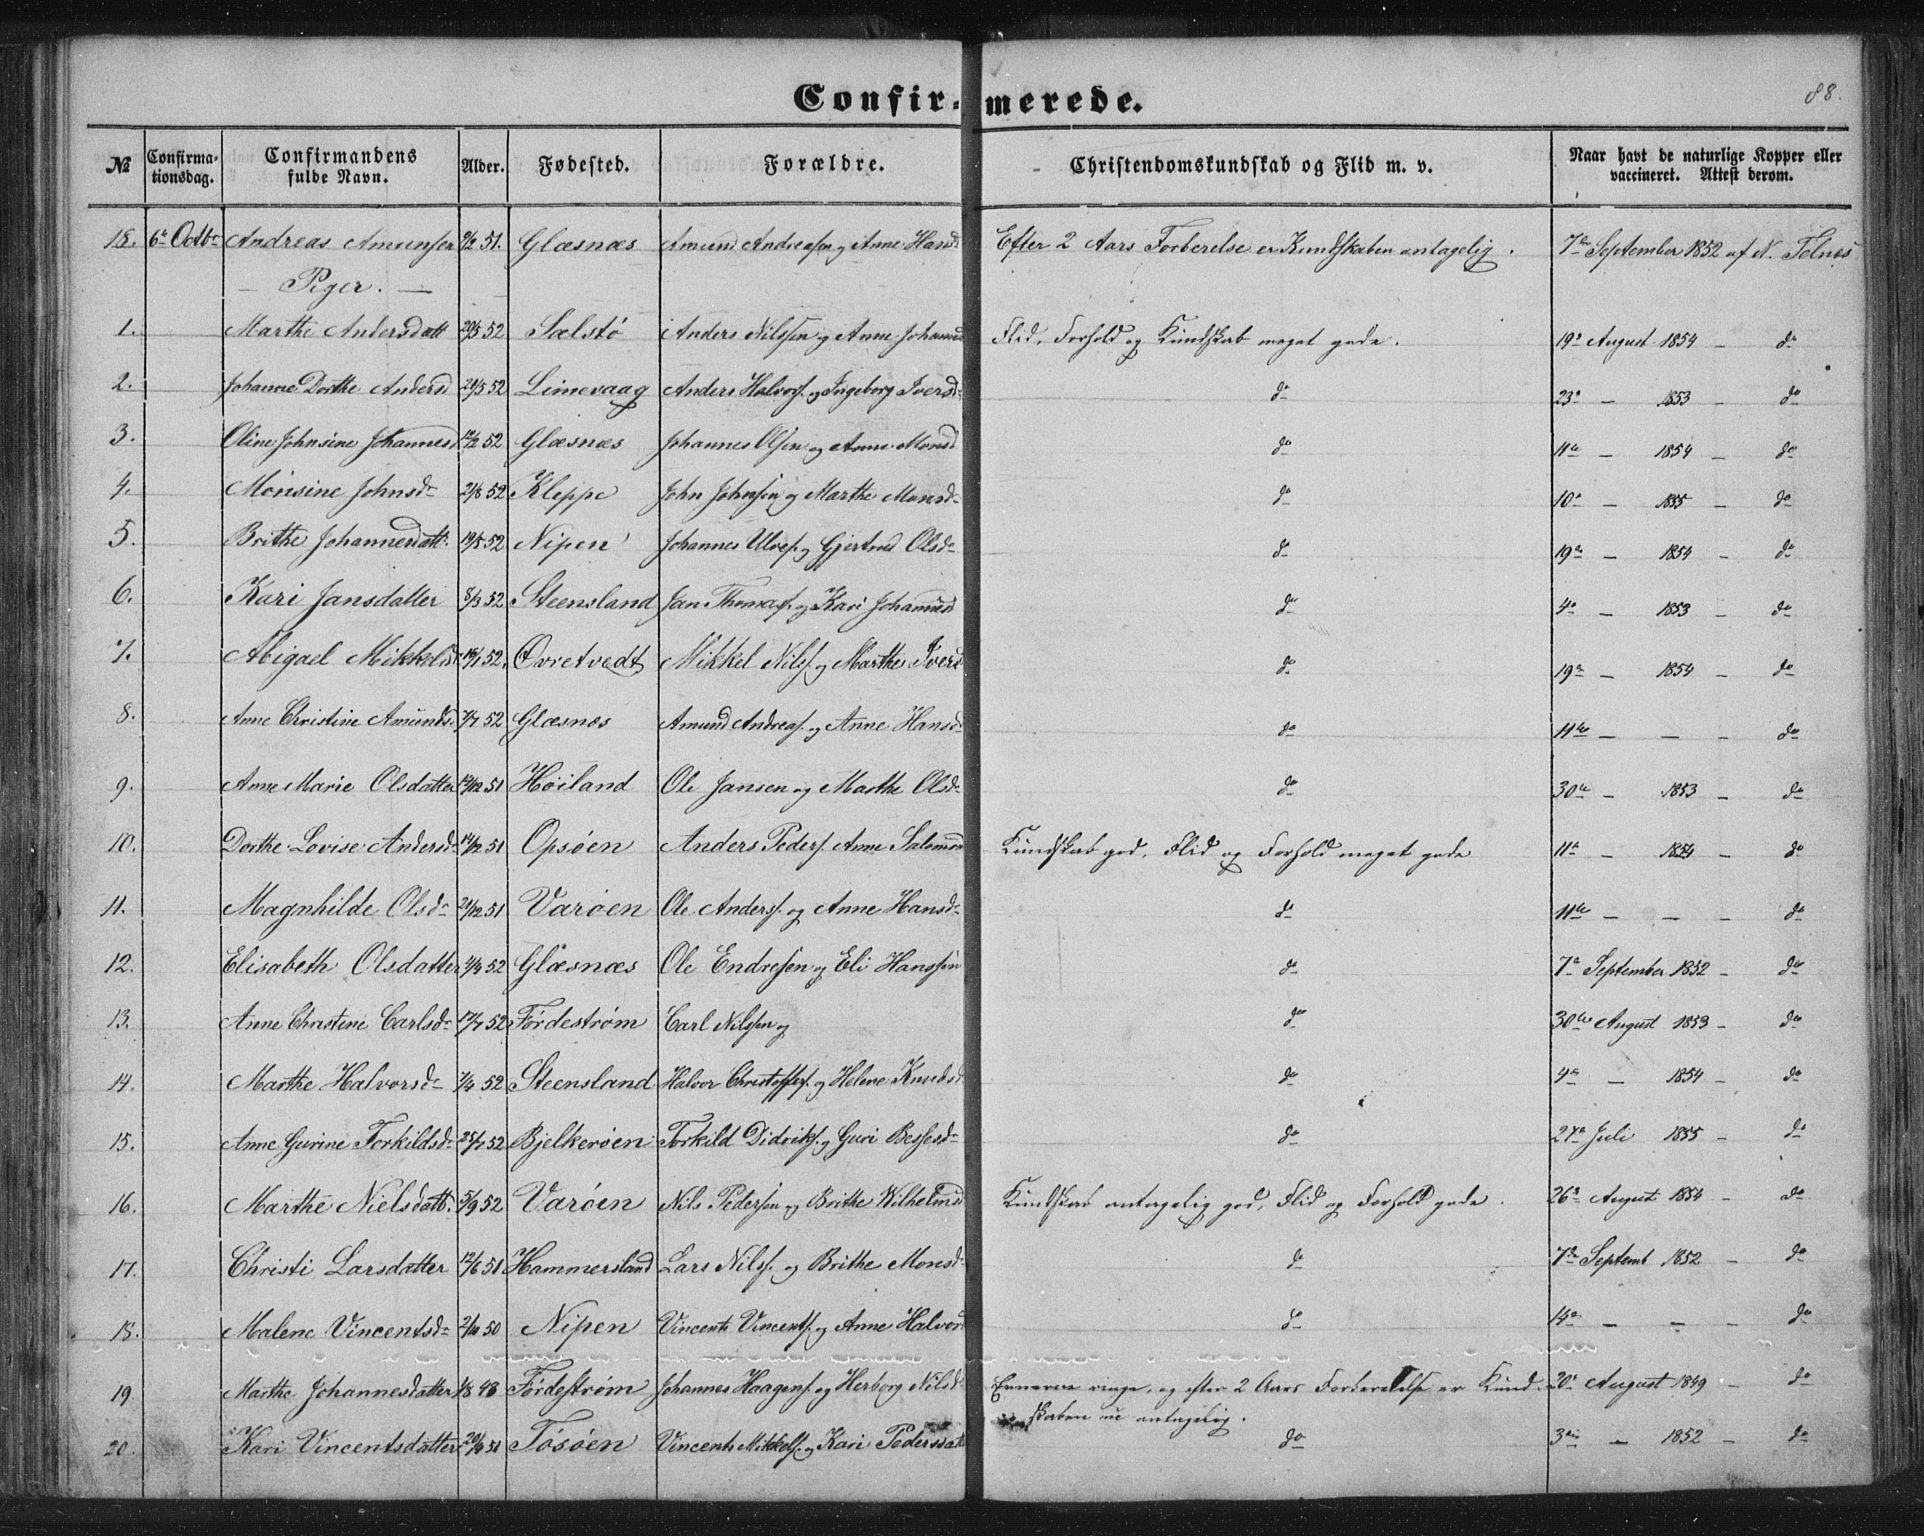 Confirmerede.
88.
№ Confirmationsdag. Confirmandens fulde Navn. Alder. Fødested. Forældre. Christendomskundskab og Flid m. v. Naar havt de naturlige Kopper eller vaccineret. Attest derom.
18. 6te Octbr Andreas Amunsen 51. Glæsnæs Amund Andreasen og Anne Hansd Efter 2 Aars Forberelse er Kundskaben antagelig. 7de September 1852 af N. Telnes
— Piger. —
1. Marthe Andersdatt 20/5 52 Sælstö Anders Nilssen og Anne Johannesd Flid, Forhold og Kundskab meget gode. 19de August 1854 — do
2. Johanne Dorthe Andersd 20/5 52 Limevaag Anders Halvors. og Ingeborg Iversd do 23de — 1853 — do
3. Oline Johnsine Johannesd 12/2 52 Glæsnæs Johannes Olsen og Anne Monsd do 11te — 1854 — do
4. Monsine Johnsdr 21/8 52 Kleppe John Johnsen og Marthe Monsdr do 10de — 1855 — do
5. Brithe Johannesdatt. 19/5 52 Nipen Johannes Ulves. og Gjertrud Olsdr do 19de — 1854 — do
6. Kari Jansdatter 8/3 52 Steensland Jan Thomas. og Kari Johannesd do 4de — 1853 — do
7. Abigael Mikkelsd 52. Øvretvedt Mikkel Nilss. og Marthe Iversd do 19de — 1854 — do
8. Anne Christine Amunds. 7/7 52 Glæsnæs Amund Andreas. og Anne Hansd do 11te — — — do
9. Anne Marie Olsdatter 12/12 51 Høiland Ole Jansen og Marthe Olsdr do 30te — 1853 — do
10. Dorthe Lovise Andersdr 14/12 51 Opsøen Anders Peders. Anne Salomons Kundskab god, Flid og Forhold meget gode 11te — 1854 — do
11. Magnhilde Olsdr 21/12 51 Varøen Ole Anders. og Anne Hansdr do 11te — — — do
12. Elisabeth Olsdatter 1/4 52 Glæsnæs Ole Endresen og Eli Hanssen do 7de September 1852 — do
13. Anne Christine Carlsdr 17/7 52 Førdestrøm Carl Nilssen og do 30te August 1853 — do
14. Marthe Halvorsdr 7/4 52 Steensland Halvor Christoffers. og Helene Knudsd do 4de — 1854 — do
15. Anne Gurine Torkildsdr 25/7 52 Bjelkerøen Torkild Didriks. og Guri Bessesdr do 27de Juli 1855 — do
16. Marthe Nielsdatt. 5/9 52 Varøen Nils Pedersen og Brithe Wilhelmsd Kundskab antagelig god, Flid og Forhold gode. 26de August 1854 — do
17. Christi Larsdatter 12/6 51 Hammersland Lars Nilss. og Brithe Monsd. do 7de Septemb 1852 — do
18. Malene Vincentsdr 50 Nipen Vincents Vincents. og Anne Halvors do 14de — — — do
19. Marthe Johannesdatter 1/8 48 Førdestrøm Johannes Haagens. og Herborg Nilsd. Evnerne ringe, og efter 2 Aars Forberedelse er Kund- 20de August 1849 — do
skaben nu antagelig.
20. Kari Vincentsdatter 20/4 51 Tösøen Vincents Mikkels. og Kari Pedersdatt do 3die — 1852 — do